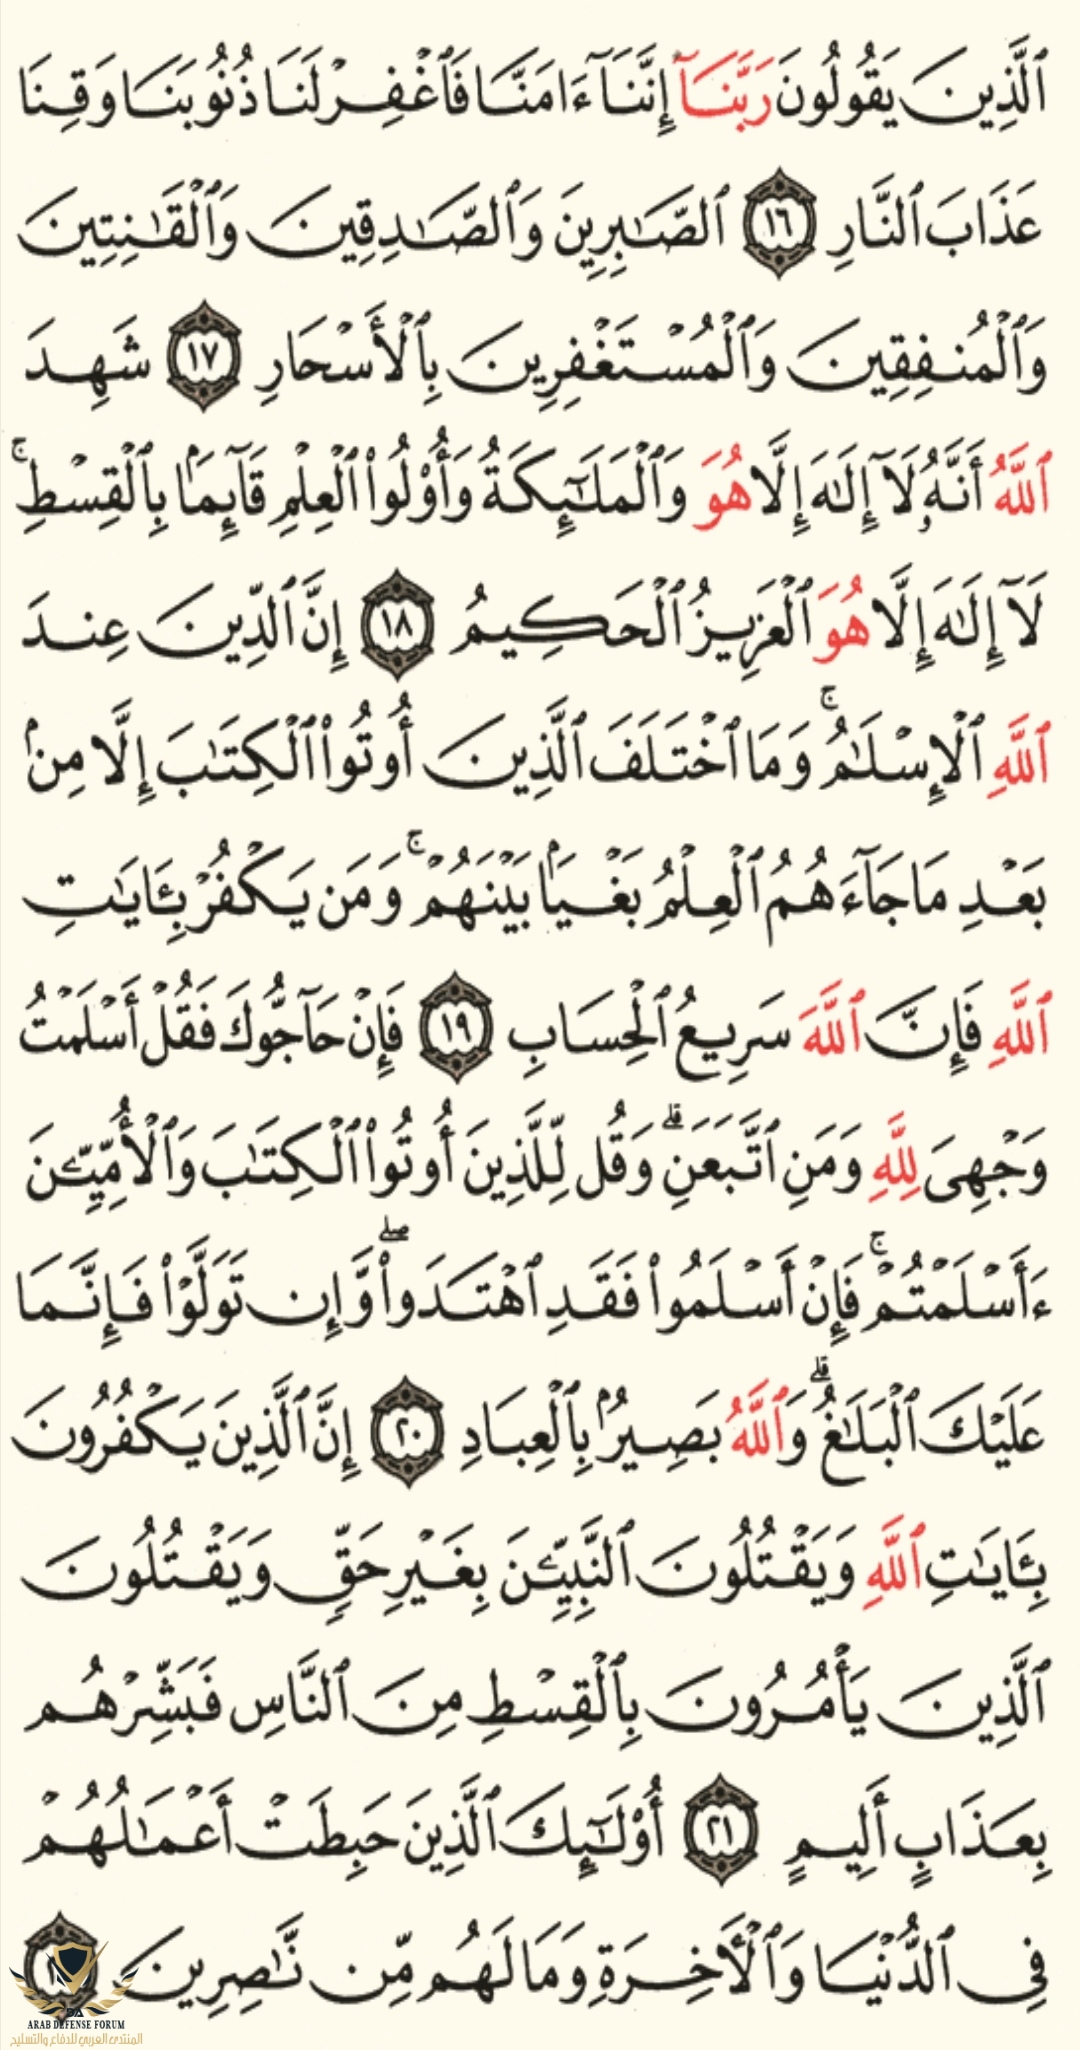 ٱلَّذِينَ يَقُولُونَ رَبَّنَآ إِنَّنَآ ءَامَنَّا فَٱغْفِرْ لَنَا ذُنُوبَنَا وَقِنَا
عَذَابَ ٱلنَّارِ ١٦ ٱلصَّـٰبِرِينَ وَٱلصَّـٰدِقِينَ وَٱلْقَـٰنِتِينَ
وَٱلْمُنفِقِينَ وَٱلْمُسْتَغْفِرِينَ بِٱلْأَسْحَارِ ١٧ شَهِدَ
ٱللَّهُ أَنَّهُۥ لَآ إِلَـٰهَ إِلَّا هُوَ وَٱلْمَلَـٰٓئِكَةُ وَأُو۟لُوا۟ ٱلْعِلْمِ قَآئِمًۢا بِٱلْقِسْطِ ۚ
لَآ إِلَـٰهَ إِلَّا هُوَ ٱلْعَزِيزُ ٱلْحَكِيمُ ١٨ إِنَّ ٱلدِّينَ عِندَ
ٱللَّهِ ٱلْإِسْلَـٰمُ ۗ وَمَا ٱخْتَلَفَ ٱلَّذِينَ أُوتُوا۟ ٱلْكِتَـٰبَ إِلَّا مِنۢ
بَعْدِ مَا جَآءَهُمُ ٱلْعِلْمُ بَغْيًۢا بَيْنَهُمْ ۗ وَمَن يَكْفُرْ بِـَٔايَـٰتِ
ٱللَّهِ فَإِنَّ ٱللَّهَ سَرِيعُ ٱلْحِسَابِ ١٩ فَإِنْ حَآجُّوكَ فَقُلْ أَسْلَمْتُ
وَجْهِىَ لِلَّهِ وَمَنِ ٱتَّبَعَنِ ۗ وَقُل لِّلَّذِينَ أُوتُوا۟ ٱلْكِتَـٰبَ وَٱلْأُمِّيِّـۧنَ
ءَأَسْلَمْتُمْ ۚ فَإِنْ أَسْلَمُوا۟ فَقَدِ ٱهْتَدَوا۟ ۖ وَّإِن تَوَلَّوْا۟ فَإِنَّمَا
عَلَيْكَ ٱلْبَلَـٰغُ ۗ وَٱللَّهُ بَصِيرٌۢ بِٱلْعِبَادِ ٢٠ إِنَّ ٱلَّذِينَ يَكْفُرُونَ
بِـَٔايَـٰتِ ٱللَّهِ وَيَقْتُلُونَ ٱلنَّبِيِّـۧنَ بِغَيْرِ حَقٍّ وَيَقْتُلُونَ
ٱلَّذِينَ يَأْمُرُونَ بِٱلْقِسْطِ مِنَ ٱلنَّاسِ فَبَشِّرْهُم
بِعَذَابٍ أَلِيمٍ ٢١ أُو۟لَـٰٓئِكَ ٱلَّذِينَ حَبِطَتْ أَعْمَـٰلُهُمْ
فِى ٱلدُّنْيَا وَٱلْـَٔاخِرَةِ وَمَا لَهُم مِّن نَّـٰصِرِينَ
ARAB DEFENSE FORUM
المنتدى العربي للدفاع والتسليح